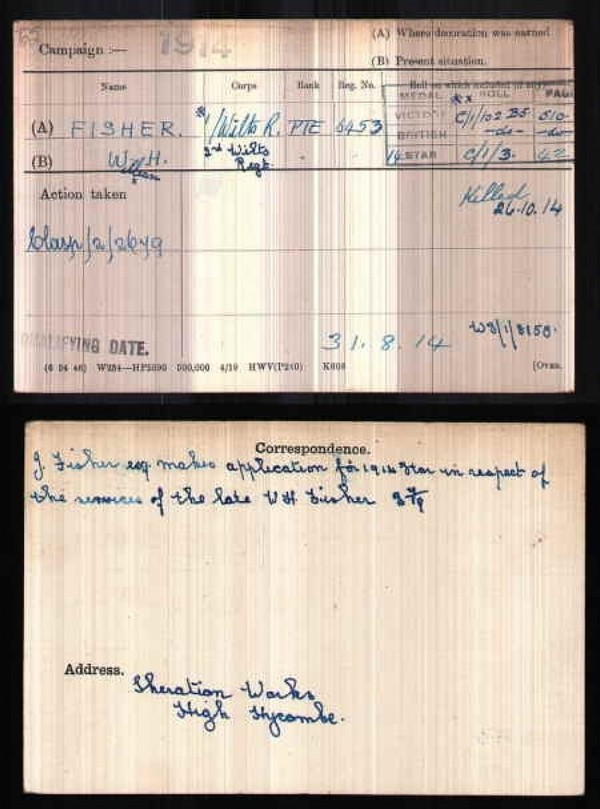 Campaign :— 1914
(A) Where decoration was earned
(B) Present situation.
Name Corps Rank Reg. No. Roll on which included (if any)
MEDAL ROLL PAGE
(A) FISHER. * 1/Wilts R. PTE 6453 VICTORY ** C/1/102 B5 510
BRITISH -do- -do-
(B) W. H. 2nd Wilts 14 STAR C/1/3. 42
William Regt
Action taken
Killed
26.10.14
Clasp/2/2679
QUALIFYING DATE. 31.8.14 W3/1/8150.
(6 34 46) W234—HP5590 500,000 4/19 HWV(P240) K608 [Over.
Correspondence.
J. Fisher esq makes application for 1914 Star in respect of
the services of the late W H Fisher
Address. Sheration Works
High Wycombe.